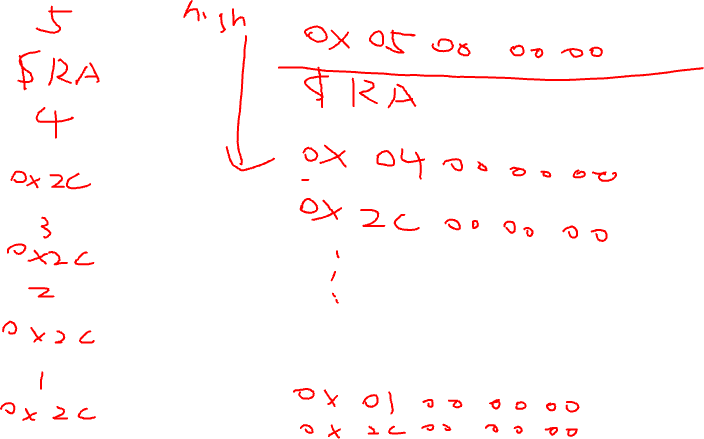 5
$RA
4
0x2C
3
0x2C
2
0x2C
1
0x2C
high
0x 05 00 00 00
$RA
0x 04 00 00 00
0x 2C 00 00 00
0x 01 00 00 00
0x 2C 00 00 00